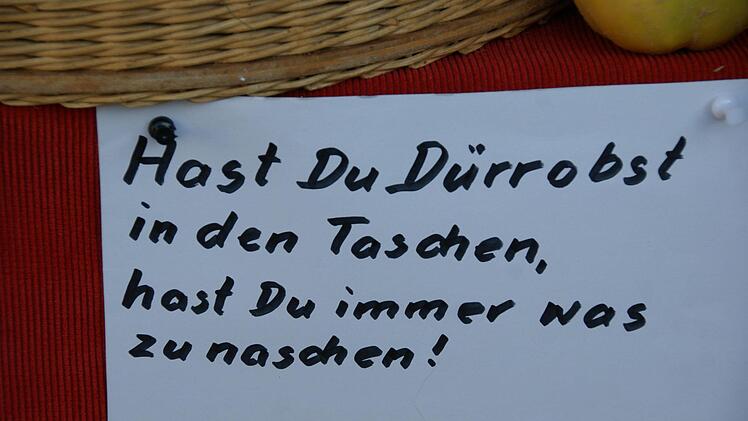 Hast Du Dürrobst
in den Taschen,
hast Du immer was
zu naschen!